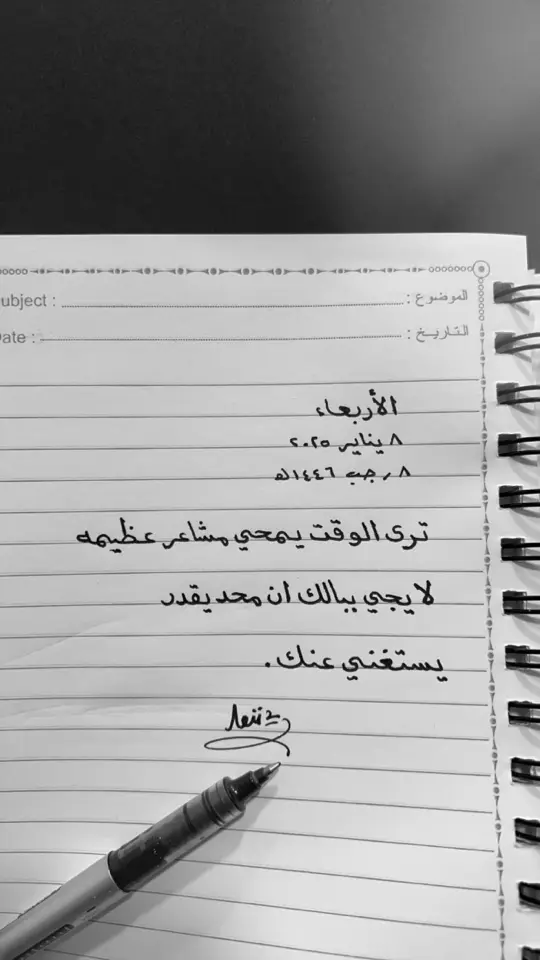 الموضوع :
ubject :
التاريخ :
Date :
الأربعاء
٨ يناير ٢٠٢٥
٨ رجب ١٤٤٦هـ
ترى الوقت يمحي مشاعر عظيمه
لا يجي ببالك ان محد يقدر
يستغني عنك.